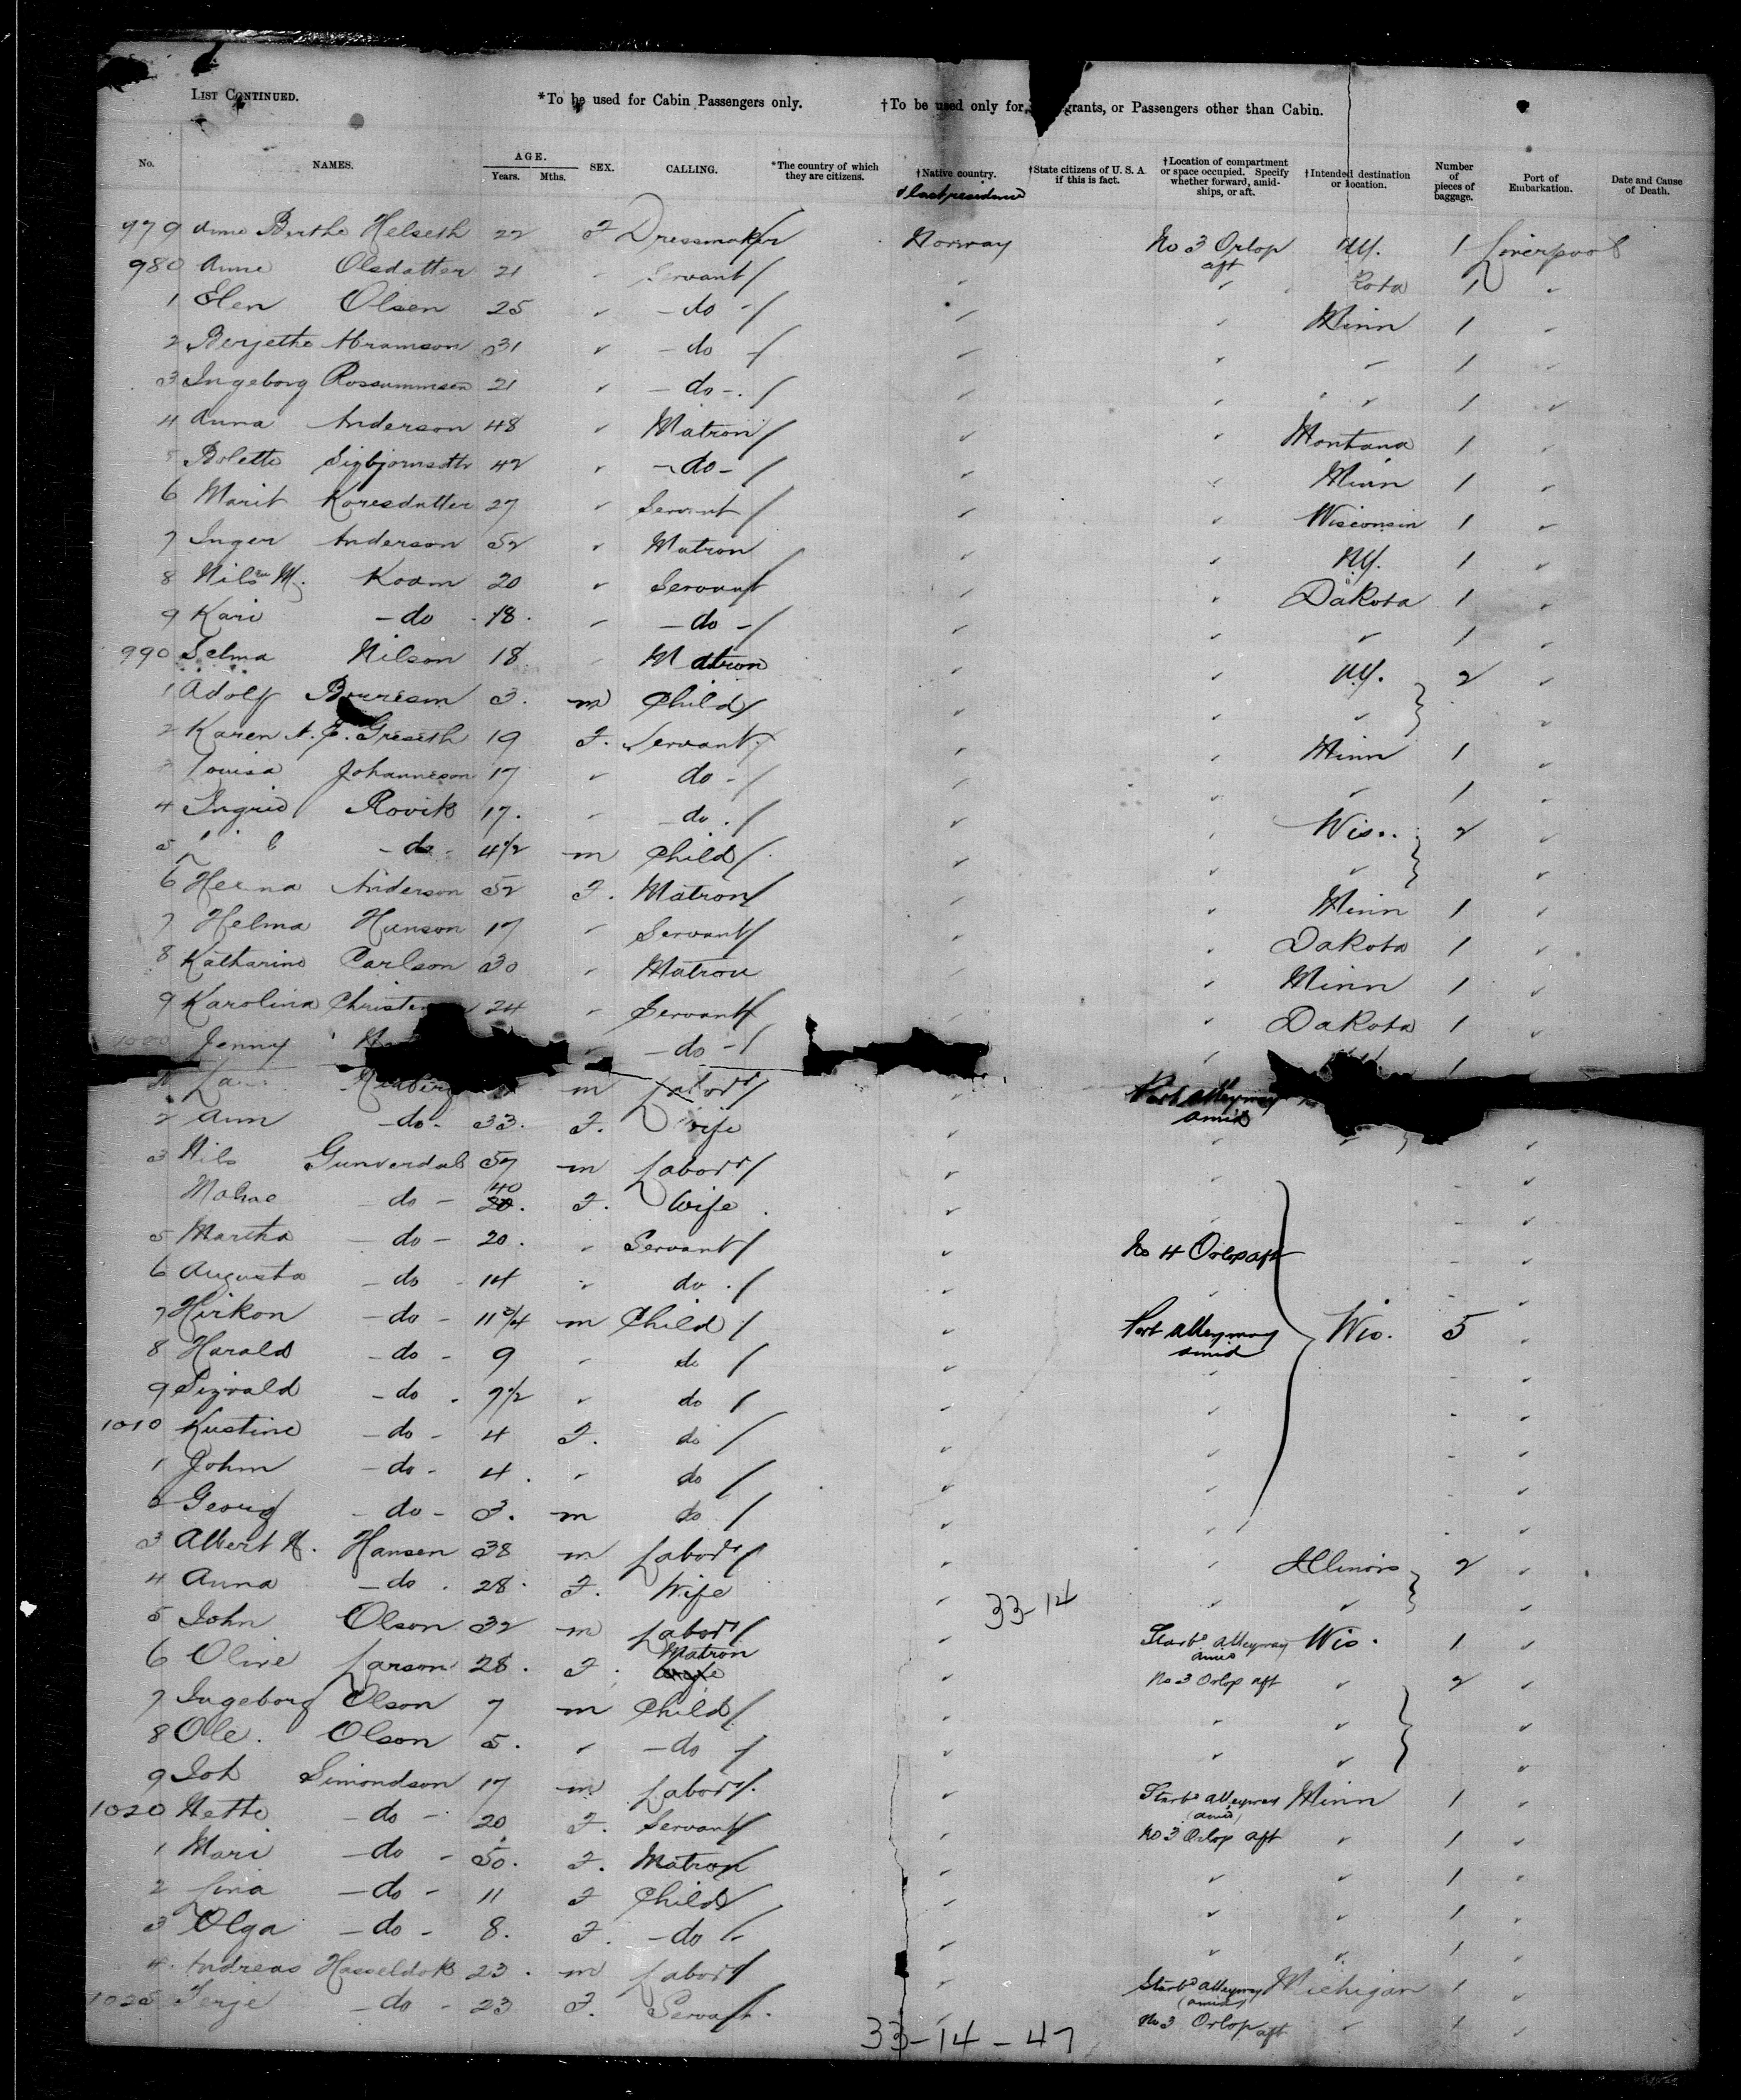 LIST CONTINUED. *To be used for Cabin Passengers only. †To be used only for grants, or Passengers other than Cabin.
No. NAMES. AGE. Years. Mths. SEX. CALLING. *The country of which they are citizens. †Native country. & last residence †State citizens of U. S. A. if this is fact. †Location of compartment or space occupied. Specify whether forward, amidships, or aft. †Intended destination or location. Number of pieces of baggage. Port of Embarkation. Date and Cause of Death.
979 Anne Berthe Helseth 22 F Dressmaker Norway No 3 Orlop aft N.Y. 1 Liverpool
980 Anne Olsdatter 21 " Servant " " Kota 1 "
1 Elen Olsen 25 " - do - " " Minn 1 "
2 Berjethe Abramson 31 " - do - " " " 1 "
3 Ingeborg 21 " - do - " " " 1 "
4 Anna Anderson 48 " Matron " " Montana 1 "
5 Bolette Sigbjornsdtr 42 " - do - " " Minn 1 "
6 Marit Karesdatter 27 " Servant " " Wisconsin 1 "
7 Inger Anderson 52 " Matron " " N.Y. 1 "
8 Nils M. Koam 20 " Servant " " Dakota 1 "
9 Kari - do - 18 " - do - " " " 1 "
990 Selma Nilson 18 " Matron " " N.Y. 2 "
1 Adolf 3 m Child " " " "
2 Karen A. E. Greseth 19 F. Servant " " Minn 1 "
3 Louisa Johanneson 17 " do - " " " 1 "
4 Ingrid Rovik 17 " - do - " " Wis. 2 "
5 - do - 4 1/2 m Child " " " "
6 Anderson 52 F. Matron " " Minn 1 "
7 Helma Hanson 17 " Servant " " Dakota 1 "
8 Katharine Carlson 30 " Matron " " Minn 1 "
9 Karolina 24 " Servant " " Dakota 1 "
1000 Jenny " - do - " 1
m Labor " Port alleyway amid
2 Ann - do - 33 F. Wife " " " "
3 Nils Gunverdal 57 m Labor " "
- do - 40 F. Wife " " - "
5 Martha - do - 20 " Servant " No 4 Orlop aft - "
6 Augusta - do - 14 " do " " - "
7 Hirkon - do - 11 3/4 m Child " Port alleyway amid Wis. 5 "
8 Harald - do - 9 " do " " - "
9 Sigvald - do - 7 1/2 " do " " - "
1010 Kustine - do - 4 F. do " " - "
1 Johm - do - 4 " do " " - "
2 Georg - do - 3 m do " " - "
3 Albert H. Hansen 38 m Labor " " Illinois 2 "
4 Anna - do - 28 F. Wife " " " "
33-14
5 John Olson 32 m Labor " Starbd alleyway amid Wis. 1 "
6 Olive Larson 28 F. Matron " No 3 Orlop aft " 2 "
7 Ingeborg Olson 7 m Child " " " "
8 Ole Olson 5 " - do - " " " "
9 Joh Simondson 17 m Labor " Starbd alleyway (amid) Minn 1 "
1020 Nette - do - 20 F. Servant " No 3 Orlop aft " 1 "
1 Mari - do - 50 F. Matron " " " 1 "
2 Lina - do - 11 F Child " " " 1 "
3 Olga - do - 8 F. - do - " " " 1 "
4 Andreas Hasseldok 23 m Labor " Starbd alleyway (amid) Michigan 1 "
1025 Terje - do - 23 F. Servant " No 3 Orlop aft " 1 "
33-14-47